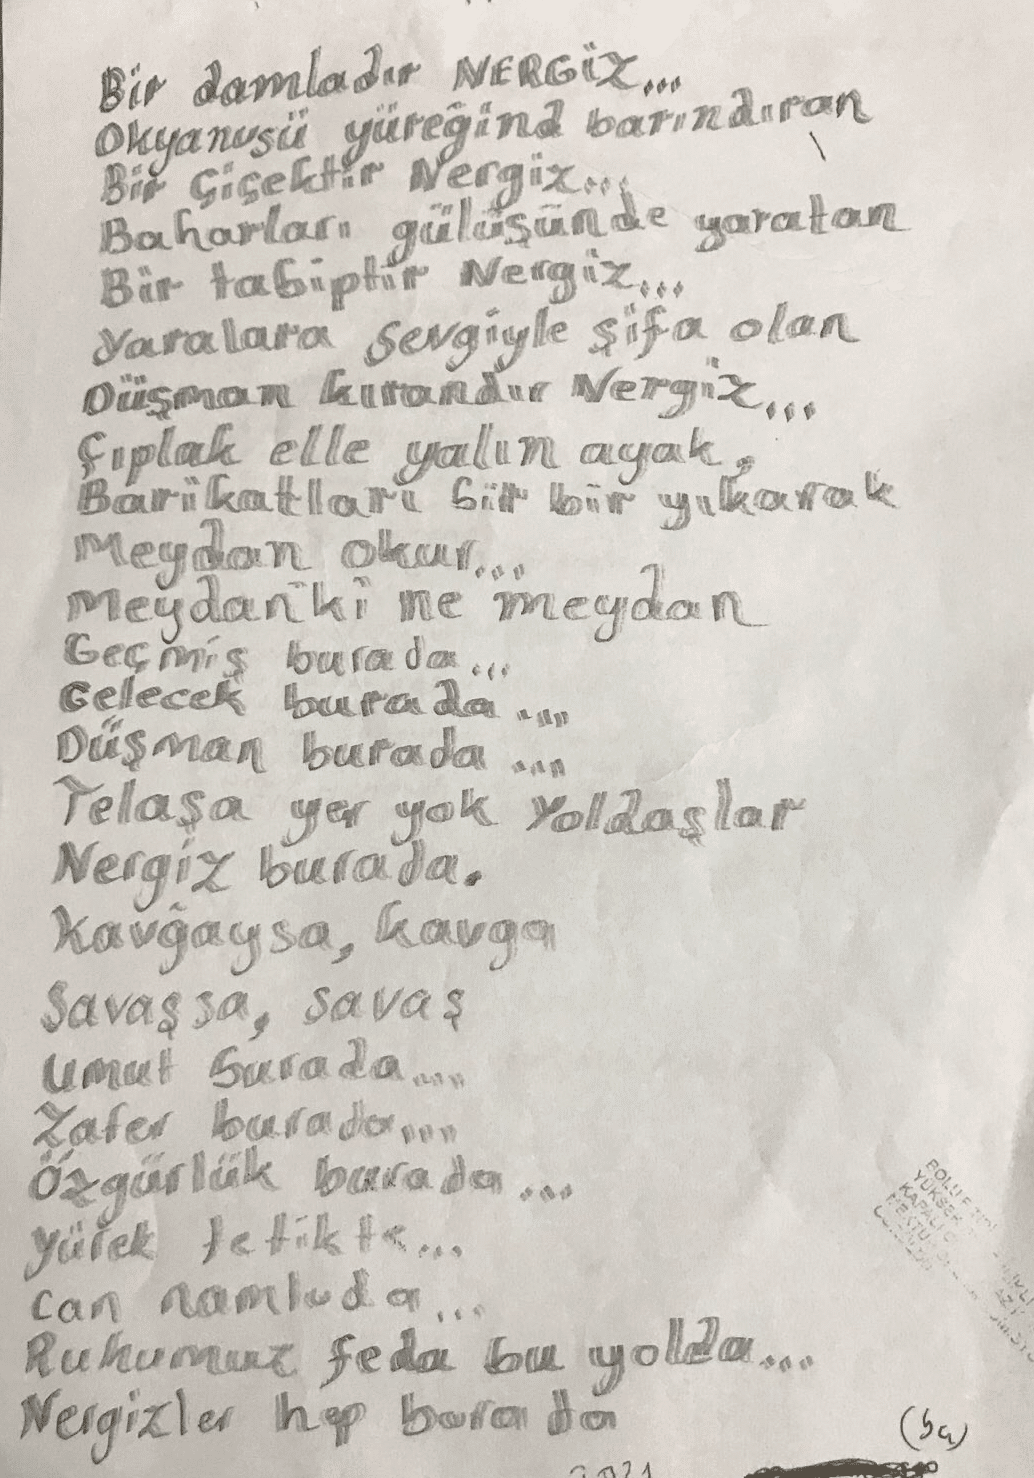 Bir damladır NERGİZ...
Okyanusü yüreğind barındıran
Bir Çiçektir Nergiz...
Baharları gülüşünde yaratan
Bir tabiptir Nergiz...
Yaralara Sevgiyle şifa olan
Düşman kırandır Nergiz...
Çıplak elle yalın ayak,
Barikatları bir bir yıkarak
Meydan okur...
Meydanki ne meydan
Geçmiş burada...
Gelecek burada...
Düşman burada...
Telaşa yer yok Yoldaşlar
Nergiz burada.
Kavğaysa, kavga
Savaşsa, savaş
Umut burada...
Zafer burada...
Özgürlük burada...
Yürek tetikte...
Can namluda...
Ruhumuz feda bu yolda...
Nergizler hep burada
(5a)
2021
BOLU F
YÜKSEK
KAPALI
MEKTU